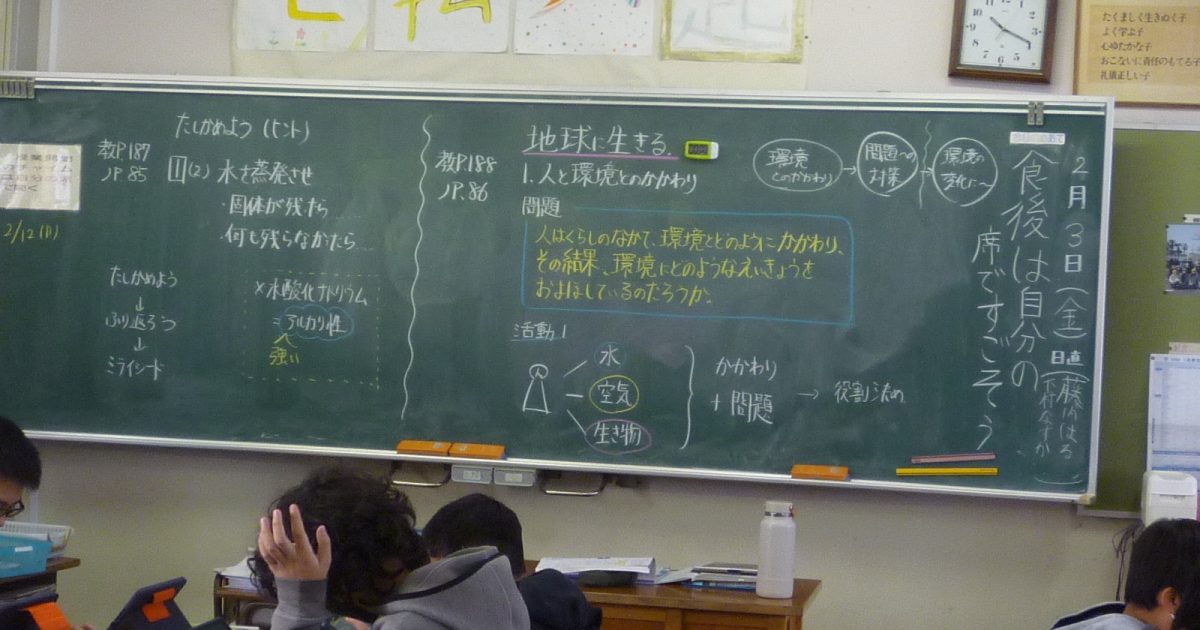 たくましく生きぬく子
よく学ぶ子
心ゆたかな子
おこないに責任のもてる子
礼儀正しい子
2月3日(金)日直
食後は自分の
席ですごそう
たしかめよう(ヒント)
教P.187
ノP.85
1(2)水を蒸発させ
・固体が残ったら
・何も残らなかたら…
2/12(日)
たしかめよう
↓
ふり返ろう
↓
ミライシード
×水酸化ナトリウム
=アルカリ性
強い
教P.188
ノP.86
地球に生きる.
1.人と環境とのかかわり
環境とのかかわり→問題への対策→環境の変化に〜
問題
人はくらしのなかで、環境とどのようにかかわり、
その結果、環境にどのようなえいきょうを
およぼしているのだろうか。
活動1
水
空気
生き物
かかわり
+問題
→役割決め